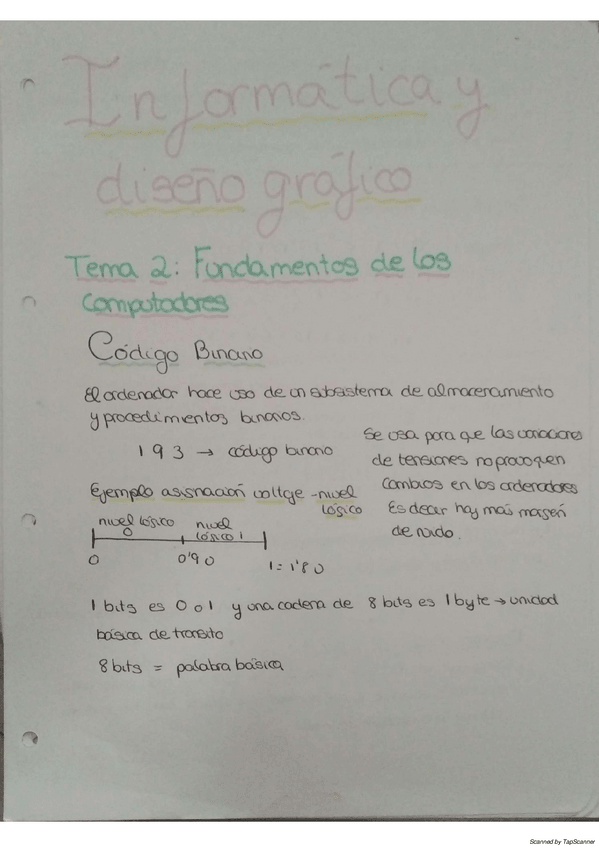 Informática y
diseño gráfico
Tema 2: Fundamentos de los
Computadores
Código Binario
El ordenador hace uso de un subsistema de almacenamiento
y procedimientos binarios.
1 9 3 → código binario
Se usa para que las variaciones
de tensiones no provoquen
cambios en los ordenadores
Es decir hay más margen
de ruido.
Ejemplo asignación voltje - nivel
lógico
nivel lógico
0
nivel
lógico 1
0
0'90
1 = 1'80
1 bits es 0 o 1 y una cadena de 8 bits es 1 byte → unidad
básica de transito
8 bits = palabra básica
Scanned by TapScanner